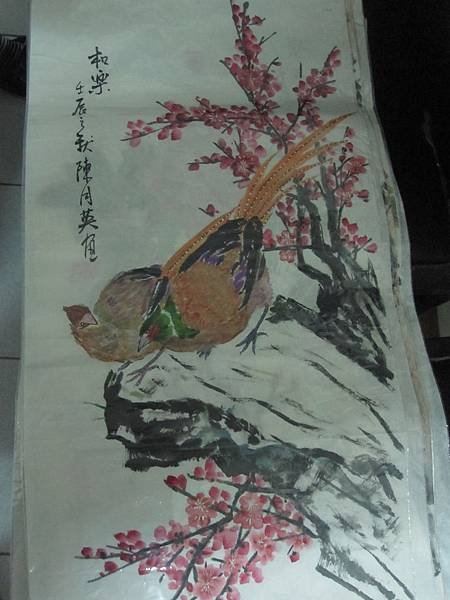 和樂
壬辰之秋陳月英画